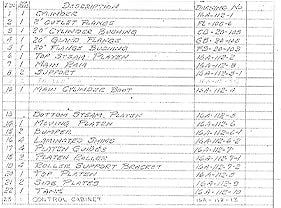 DESCRIPTION DRAWING No
1 1 CYLINDER 16A-112-1
2 1 2" OUTLET FLANGE FL-106-1
3 1 20" CYLINDER BUSHING CB-20-105
4 1 20" GLAND FLANGE
5 1 20" FLANGE BUSHING FB-20-103
6 1 TOP STEAM PLATEN 16A-112-2
7 1 MAIN RAM
8 2 SUPPORT
14 1 MAIN CYLINDER BOOT
15 BOTTOM STEAM PLATEN 16A-112-5
16 1 MOVING PLATEN 16A-112-6
15 2 BUMPER 16A-112-6-1
16 4 LAMINATED SHIMS 16A-112-6-2
17 4 PLATEN GUIDES 16A-112-7
18 3 PLATEN ROLLER 16A-112-7-1
19 4 ROLLER SUPPORT BRACKET 16A-112-7-2
20 1 TOP PLATEN
21 2 SIDE PLATES 16A-112-9
22 1 TANK 16A-112-10
23 CONTROL CABINET 16A-112-13